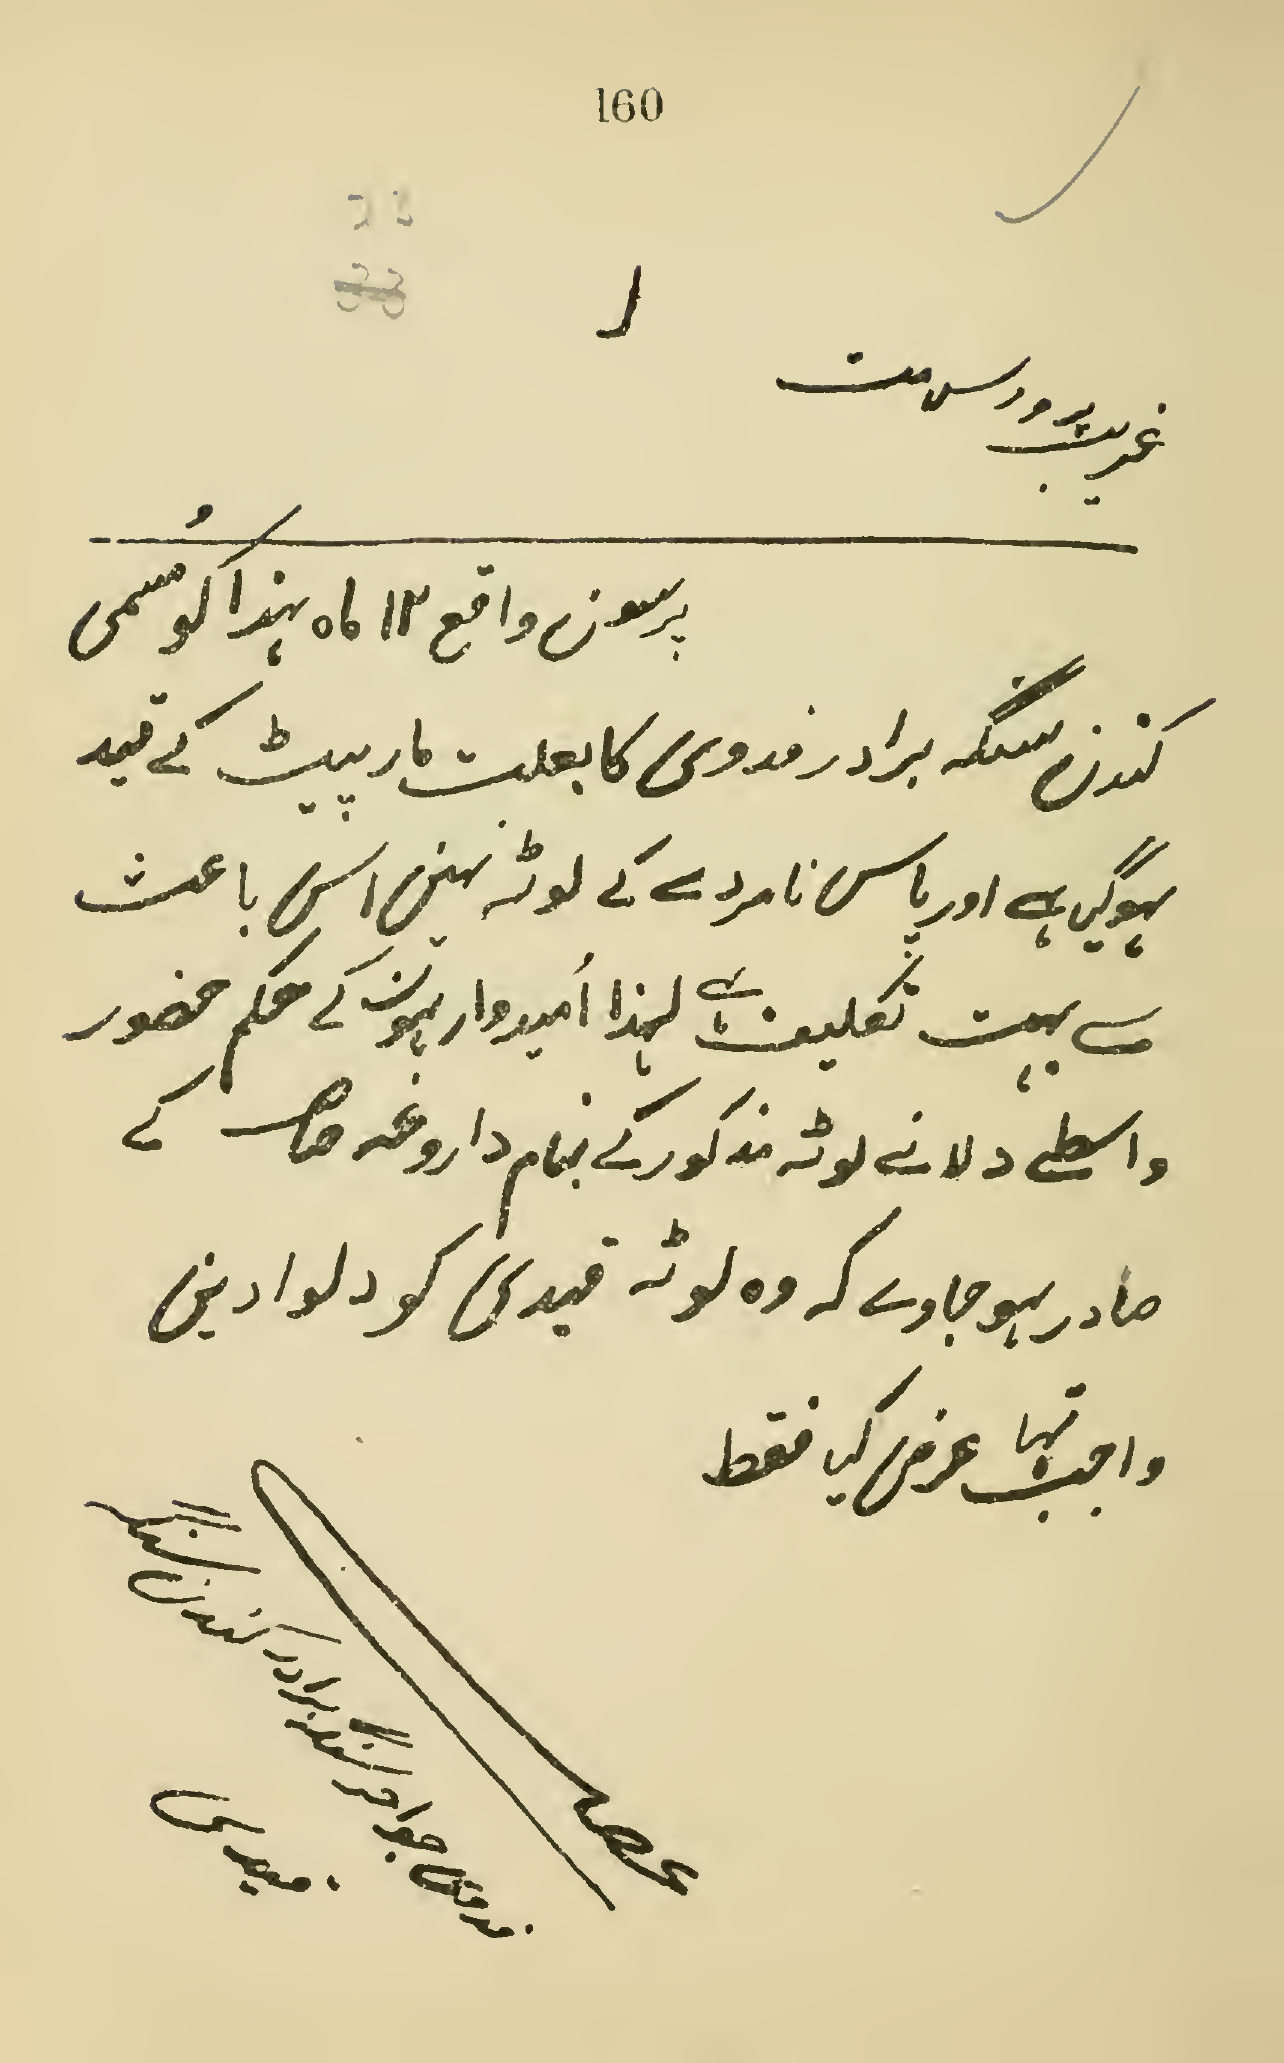 160
33
غریب پرور سلامت
پرسون واقع ۱۲ ماہ ہذا کو مُسمی
کندن سنگہ برادر فدوی کا بعلت مار پیٹ کے قید
ہوگیا ہے اور پاس نامردے کے لوٹہ نہین اس باعث
سے بہت تکلیف ہے لہذا اُمیدوار ہون کے حکم حضور
واسطے دلانے لوٹہ مذکور کے بنام داروغہ صاحب کے
صادر ہو جاوے کہ وہ لوٹہ قیدی کو دلوا دین
واجب تہا عرض کیا فقط
عرضے
فدوی جواہر سنگہ برادر کندن سنگہ
قیدی